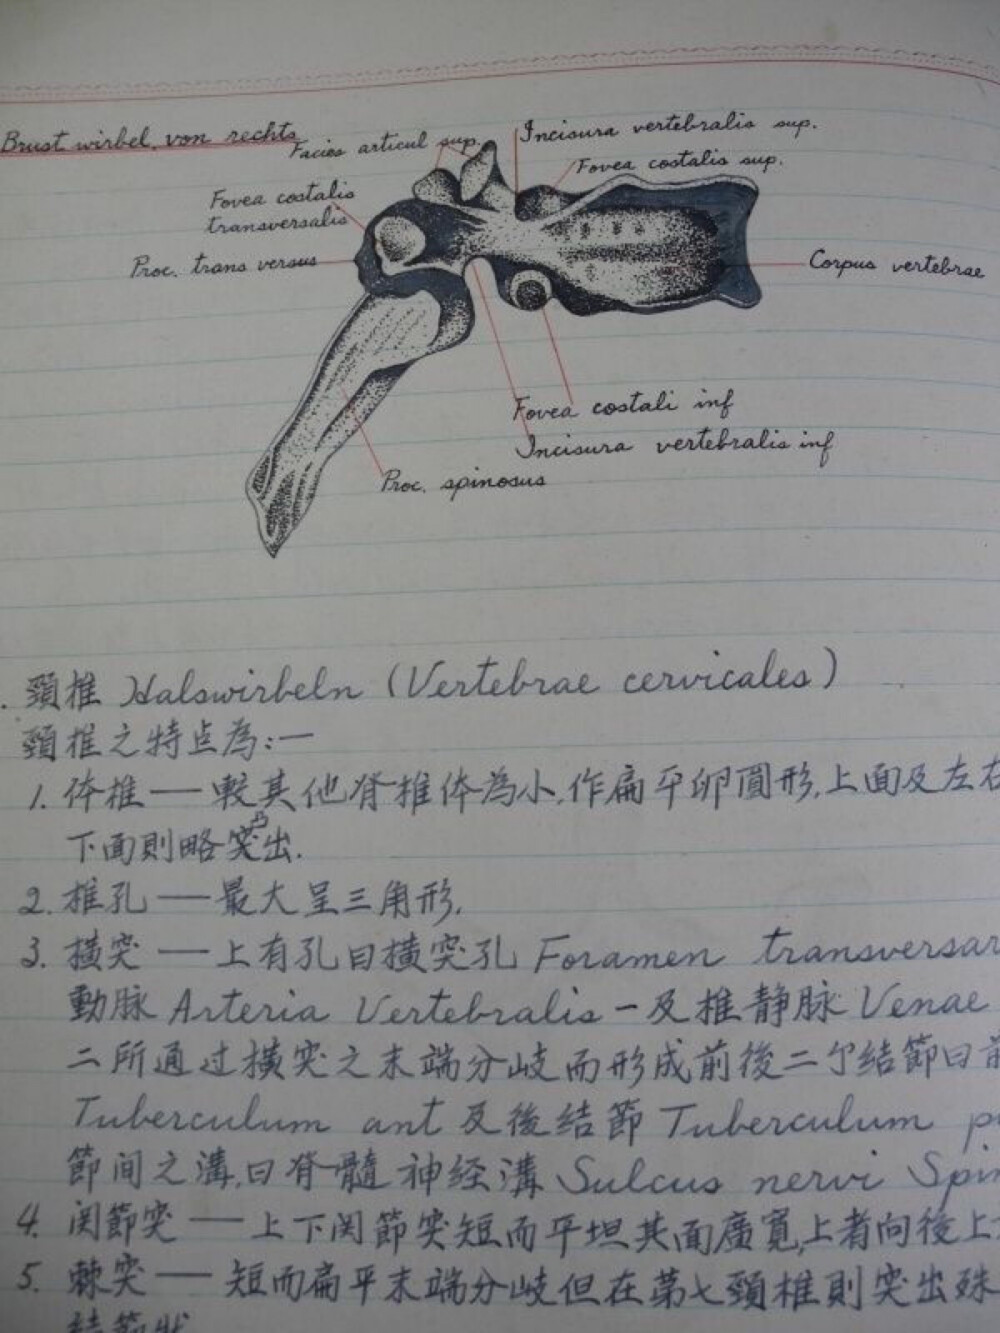 Brust wirbel von rechts
Facies articul sup.
Incisura vertebralis sup.
Fovea costalis sup.
Fovea costalis
transversalis
Proc. trans versus
Corpus vertebrae
Fovea costali inf
Incisura vertebralis inf
Proc. spinosus
. 頸椎 Halswirbeln (Vertebrae cervicales)
頸椎之特点為:—
1. 体椎 — 較其他脊椎体為小,作扁平卵圓形,上面及左右
下面則略突出.
2. 椎孔 — 最大呈三角形.
3. 橫突 — 上有孔曰橫突孔 Foramen transversar
動脈 Arteria Vertebralis - 及椎静脉 Venae
二所通过橫突之末端分岐而形成前後二个结節曰前
Tuberculum ant 及後结節 Tuberculum p
節间之溝,曰脊髓神经溝 Sulcus nervi Spin
4. 関節突 — 上下関節突短而平坦其面廣寬,上者向後上
5. 棘突 — 短而扁平末端分岐但在第七頸椎則突出殊
结節狀